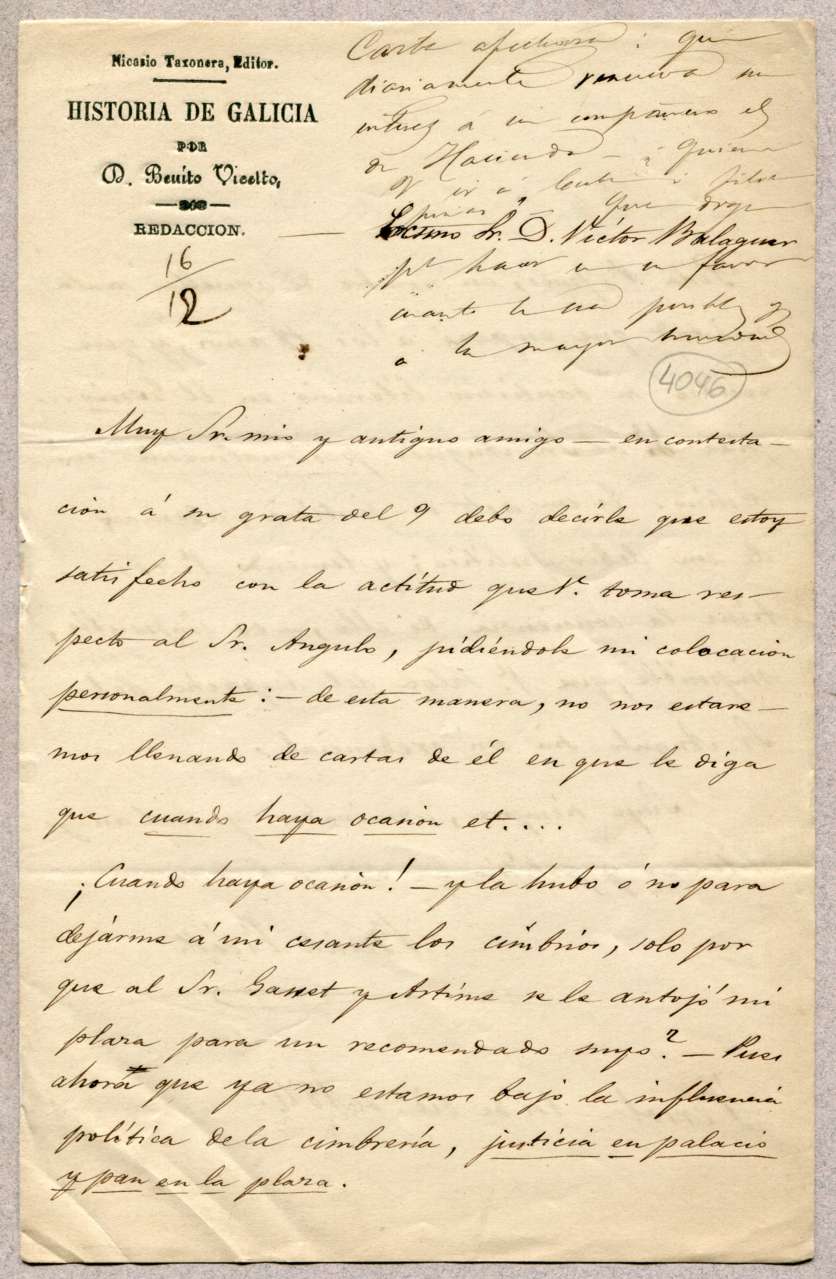 Nicasio Taxonera, Editor.
HISTORIA DE GALICIA
POR
D. Benito Vicetto,
REDACCION.
16
12
Carta afectuosa: que
diariamente renueva su
interes á su compañero el
de Hacienda – á quien
que
Excmo Sr. D. Víctor Balaguer
haor en su favor
cuanto le sea posible y
a la mayor brevedad
4046
Muy Sr. mio y antiguo amigo – en contesta–
ción á su grata del 9 debo decirle que estoy
satisfecho con la actítud que V. toma res–
pecto al Sr. Angulo, pidiéndole mi colocacion
personalmente: – de esta manera, no nos estare–
mos llenando de cartas de él en que le diga
que cuando haya ocasion et....
¡Cuando haya ocasion! – y la hubo ó no para
dejárme á mi cesante los cimbrios, solo por
que al Sr. Gasset y Artime se le antojó mi
plaza para un recomendado suyo? – Pues
ahora que ya no estamos bajo la influencia
política de la cimbrería, justicia en palacio
y pan en la plaza.